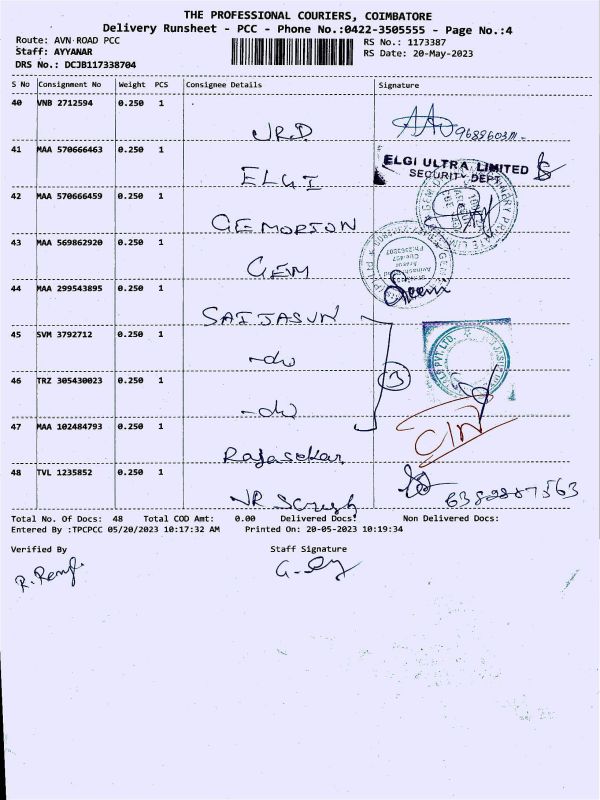 THE PROFESSIONAL COURIERS, COIMBATORE
Delivery Runsheet - PCC - Phone No.:0422-3505555 - Page No.:4
Route: AVN ROAD PCC
RS No.: 1173387
Staff: AYYANAR
RS Date: 20-May-2023
DRS No.: DCJB117338704
S No Consignment No Weight PCS Consignee Details Signature
40 VNB 2712594 0.250 1
JRD
41 MAA 570666463 0.250 1
ELGI ULTRA LIMITED
SECURITY DEPT
ELGI
42 MAA 570666459 0.250 1
GEMORION
43 MAA 569862920 0.250 1
GEM
44 MAA 299543895 1
SAIJASUN
45 SVM 3792712 0.250 1
-do
46 TRZ 305430023 0.250 1
3
-do
47 MAA 102484793 0.250 1
Rajasekar
48 TVL 1235852 0.250 1
6382887563
Total No. Of Docs: 48 Total COD Amt: 0.00 Delivered Docs: Non Delivered Docs:
Entered By :TPCPCC 05/20/2023 10:17:32 AM Printed On: 20-05-2023 10:19:34
Verified By Staff Signature